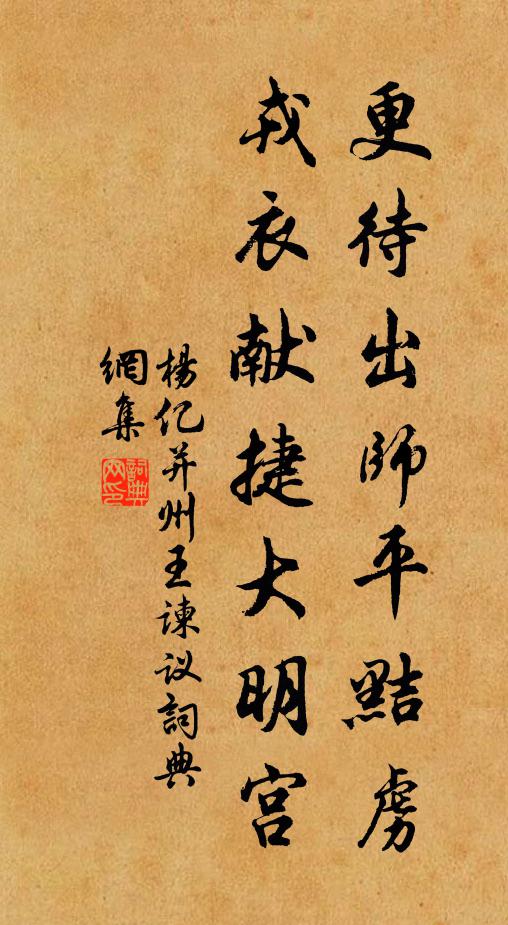 更待出师平黠虏
戎衣献捷大明宫
楊亿并州王諫议詞典
網集
詞典
网印